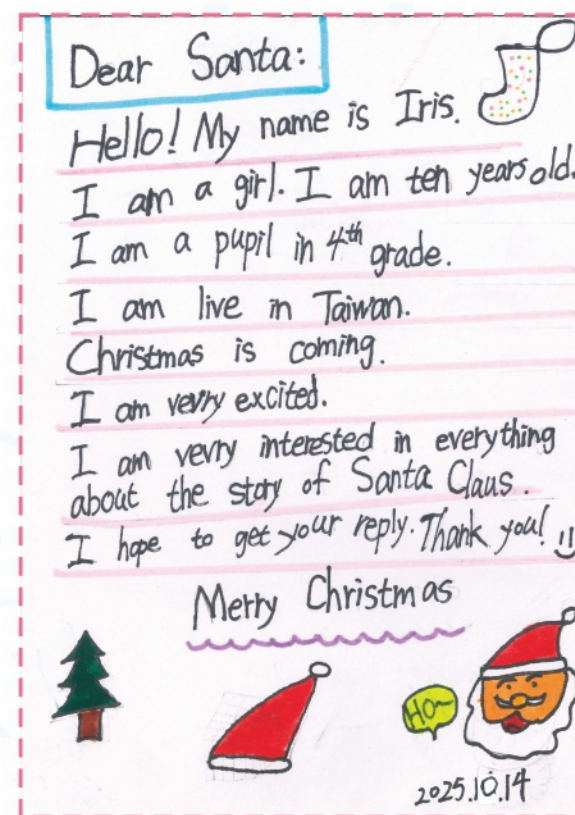 Dear Santa:
Hello! My name is Iris.
I am a girl. I am ten years old.
I am a pupil in 4th grade.
I am live in Taiwan.
Christmas is coming.
I am vevry excited.
I am vevry interested in everything
about the story of Santa Claus.
I hope to get your reply. Thank you!
Merry Christmas
HO~
2025.10.14